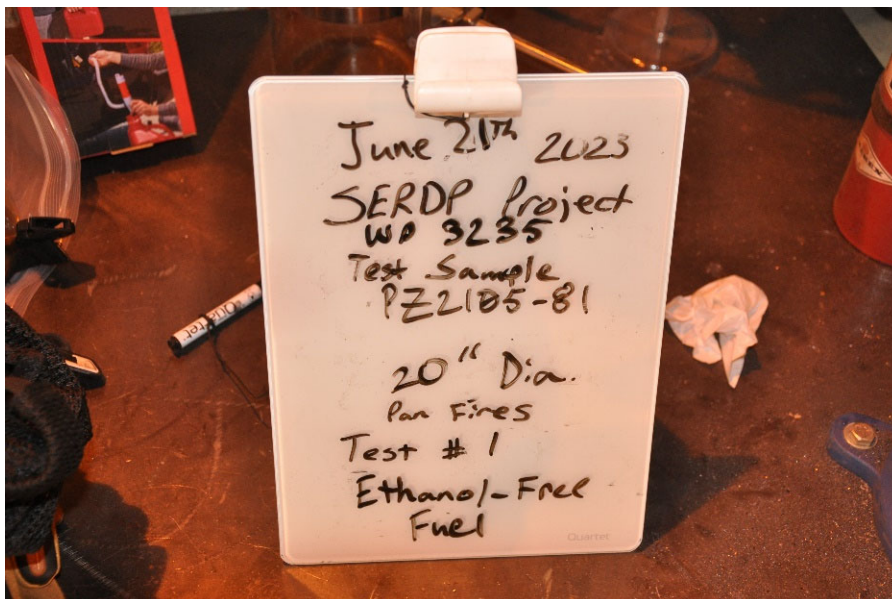 June 21th 2023
SERDP Project
WP 3235
Test Sample
PZ2105-81
20" Dia.
Pan Fires
Test # 1
Ethanol-Free
Fuel
Quartet
Quartet